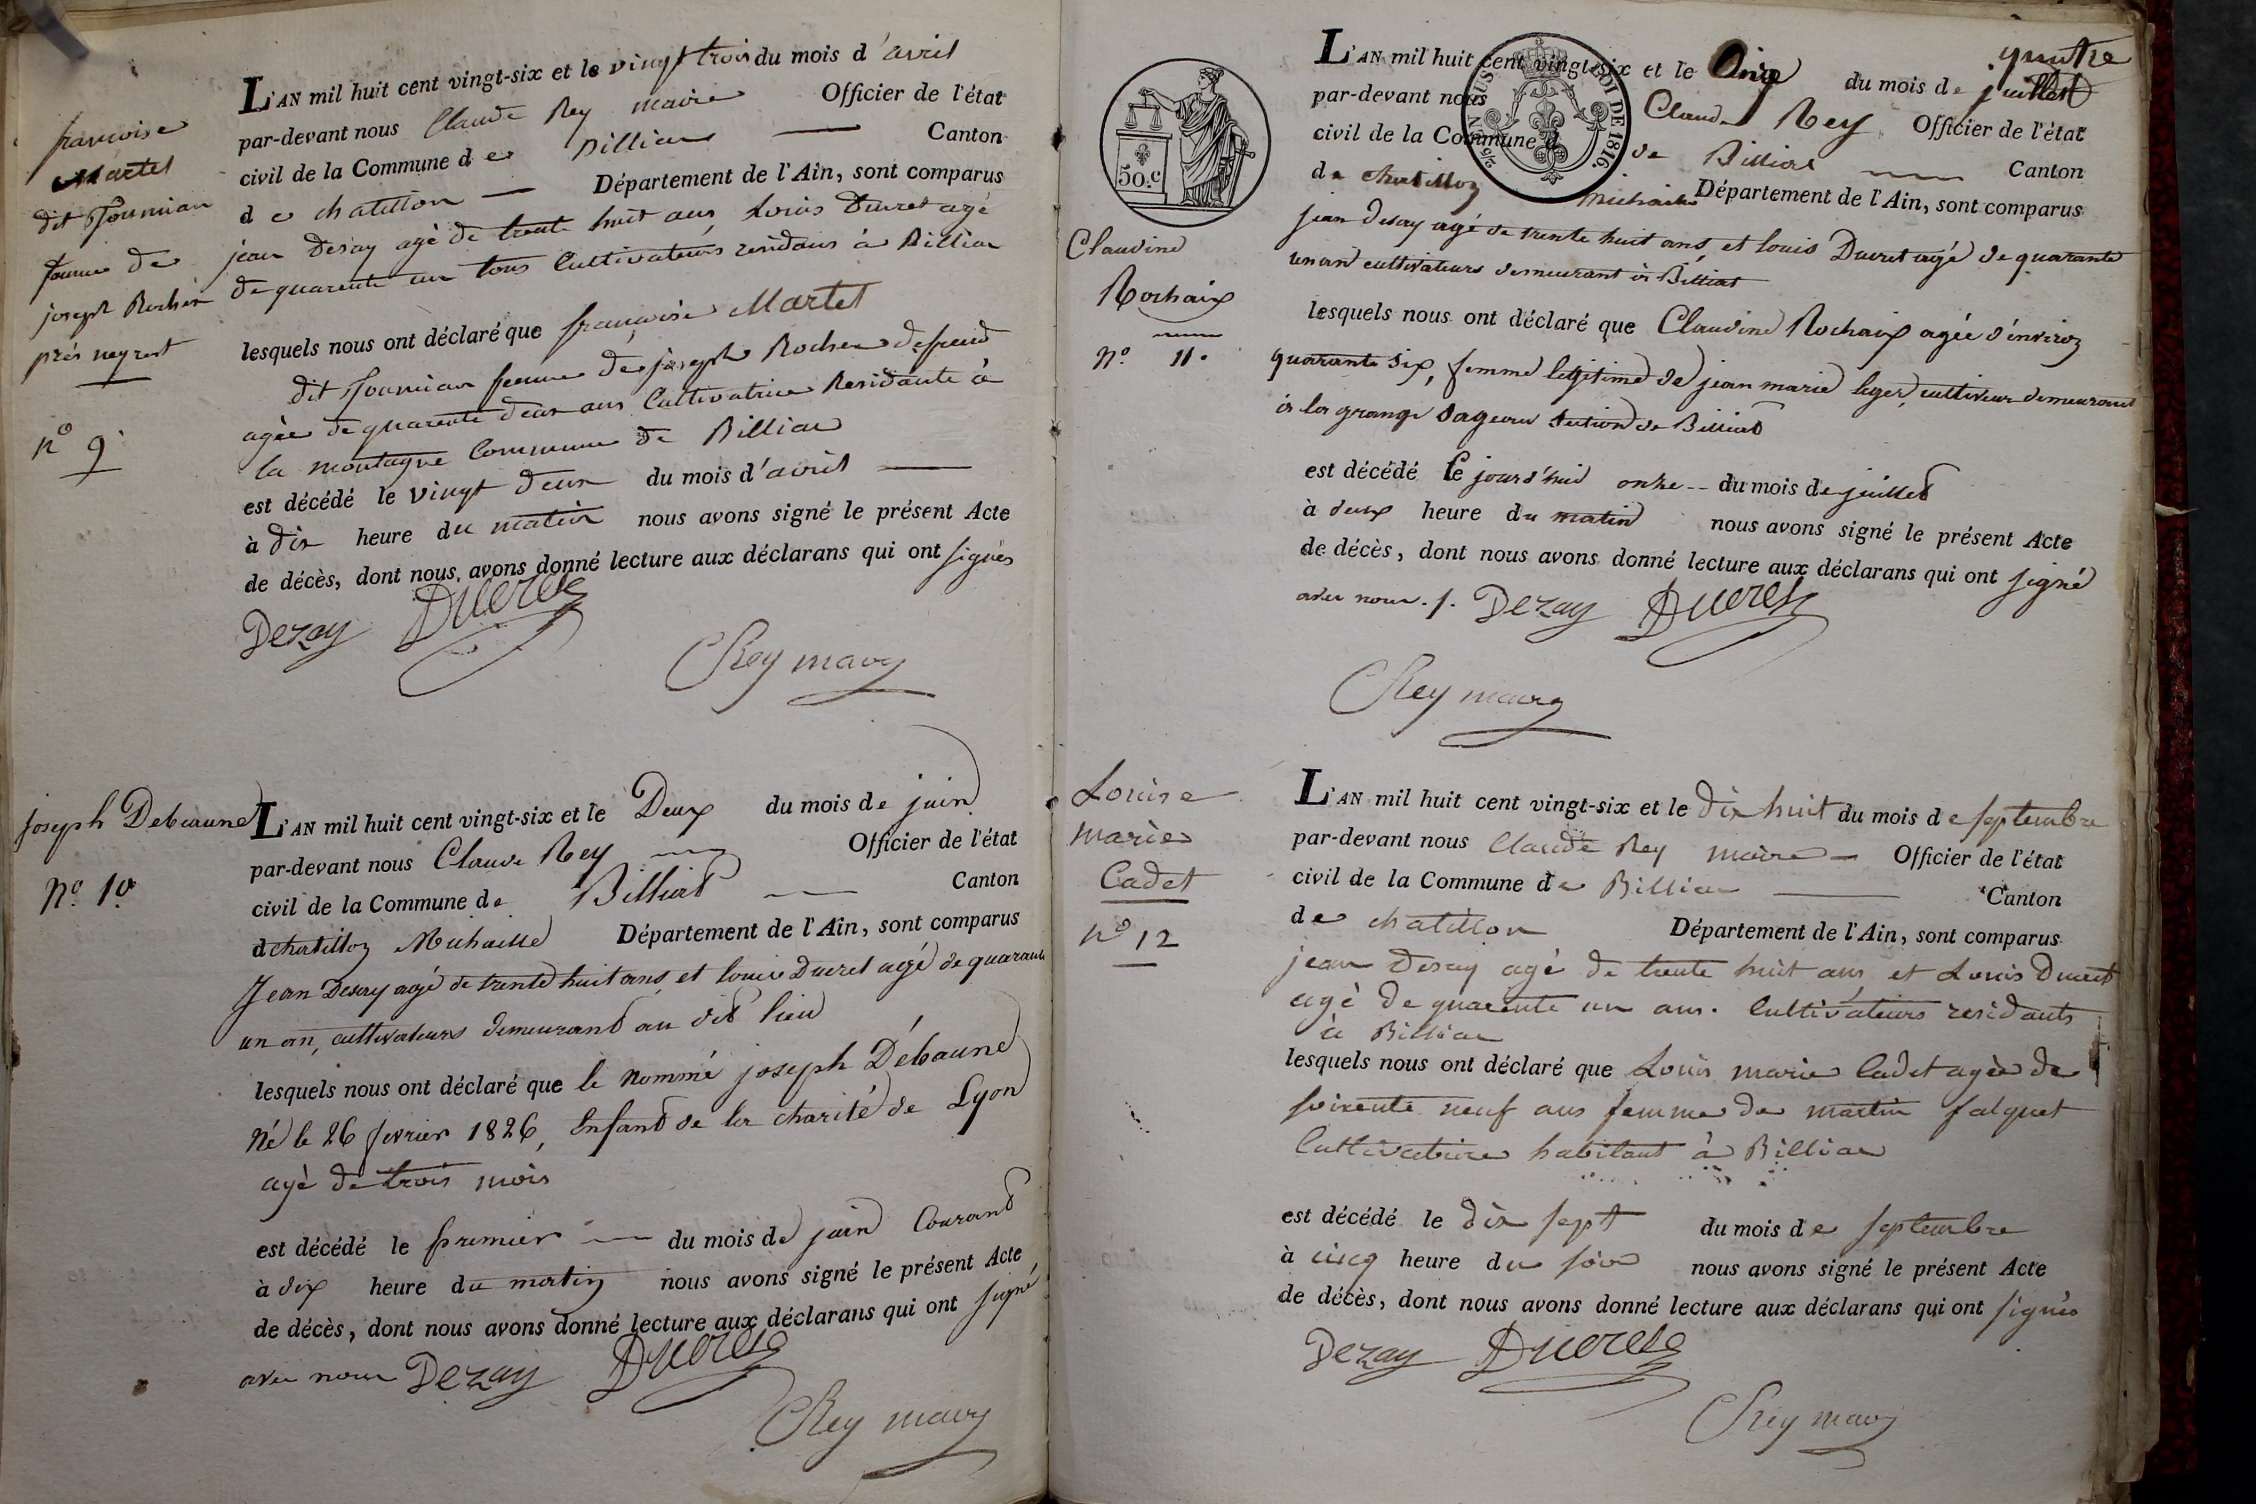 françoise
Martel
dit Journian
femme de
joseph Rochex
près neyret
n° 9
L'AN mil huit cent vingt-six et le vingt trois du mois d'avril
par-devant nous Claude Rey maire Officier de l'état
civil de la Commune de Billiac Canton
de chatillon Département de l'Ain, sont comparus
jean Desay agé de trente huit ans, Louis Ducret agé
de quarente un tous Cultivateurs residans à Billiac
lesquels nous ont déclaré que françoise Martel
dit femme de joseph Rochex
agée de quarente deux ans Cultivatrice Residante à
la montagne Commune de Billiac
est décédé le vingt deux du mois d'avril
à dix heure du matin nous avons signé le présent Acte
de décès, dont nous avons donné lecture aux déclarans qui ont signés
Dezay Ducret
CRey mary
joseph Debeaune
N° 10
L'AN mil huit cent vingt-six et le Deux du mois de juin
par-devant nous Claude Rey Officier de l'état
civil de la Commune de Billiat Canton
d chatillon Michaille Département de l'Ain, sont comparus
Jean Desay agé de trente huit ans et louis Ducret agé de quarante
un an, cultivateurs demeurant au dit lieu
lesquels nous ont déclaré que le nommé joseph Débaune
Né le 26 fevrier 1826, Enfant de la charité de Lyon
agé de trois mois
est décédé le premier du mois de juin Courant
à dix heure du matin nous avons signé le présent Acte
de décès, dont nous avons donné lecture aux déclarans qui ont signé
avec nous Dezay Ducret
CRey mary
50.c
ROI DE 1816.
Claudine
Rochaix
N° 11.
L'AN mil huit cent vingt-six et le Onze du mois de juillet
par-devant nous Claude Rey Officier de l'état
civil de la Commune d de Billiat Canton
de chatillon michaille Département de l'Ain, sont comparus
jean desay agé de trente huit ans, et louis Ducret agé de quarante
un an cultivateurs demeurant à Billiat
lesquels nous ont déclaré que Claudine Rochaix agée d'environ
quarante six, femme legitime de jean marie leger, cultiveur demeurant
à la grange section de Billiat
est décédé le jourd'hui onze du mois de juillet
à deux heure du matin nous avons signé le présent Acte
de décès, dont nous avons donné lecture aux déclarans qui ont signé
avec nous. Dezay Ducret
CRey mary
Louise
marie
Cadet
N° 12
L'AN mil huit cent vingt-six et le dix huit du mois de septembre
par-devant nous Claude Rey maire Officier de l'état
civil de la Commune de Billiac Canton
de chatillon Département de l'Ain, sont comparus
jean Desay agé de trente huit ans et Louis Ducret
agé de quarente un ans. Cultivateurs residants
à Billiac
lesquels nous ont déclaré que Louis marie Cadet agée de
soixente neuf ans femme de martin falquet
Cultivatrice habitant à Billiac
est décédé le dix sept du mois de septembre
à cinq heure du soir nous avons signé le présent Acte
de décès, dont nous avons donné lecture aux déclarans qui ont signés
Dezay Ducret
CRey mary